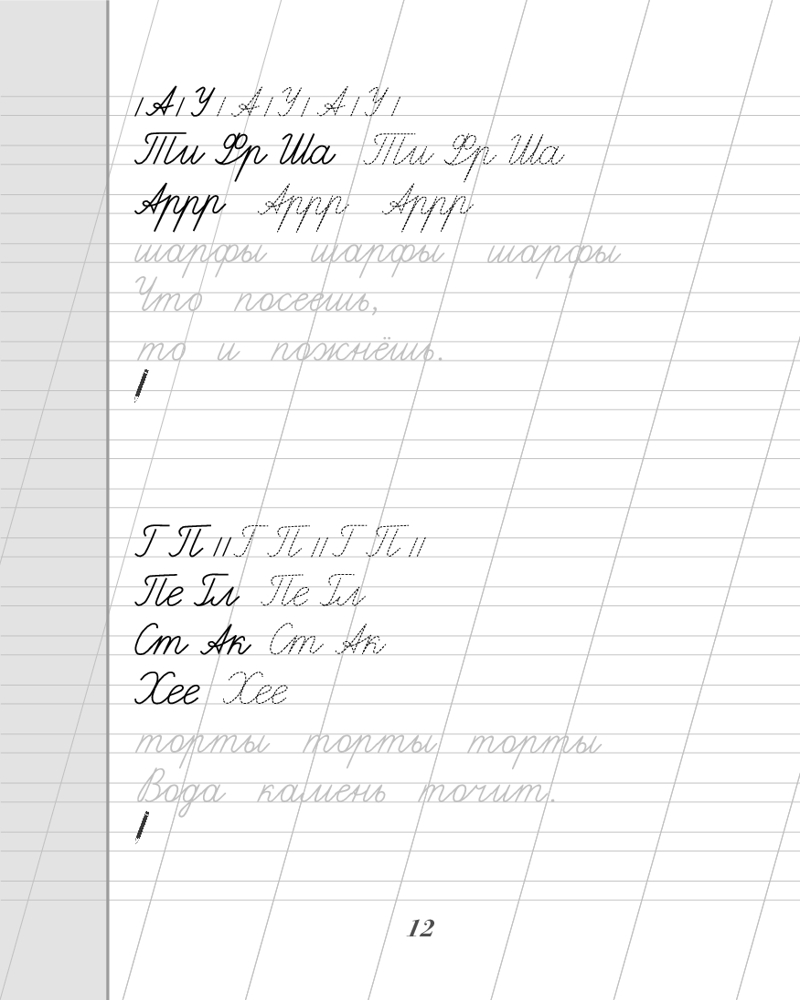 | А | У | А | У | А | У |
Ти Фр Ша Ти Фр Ша
Аррр Аррр Аррр
шарфы шарфы шарфы
Что посеешь,
то и пожнёшь.
Г П || Г П || Г П ||
Пе Гл Пе Гл
Ст Ак Ст Ак
Хее Хее
торты торты торты
Вода камень точит.
12